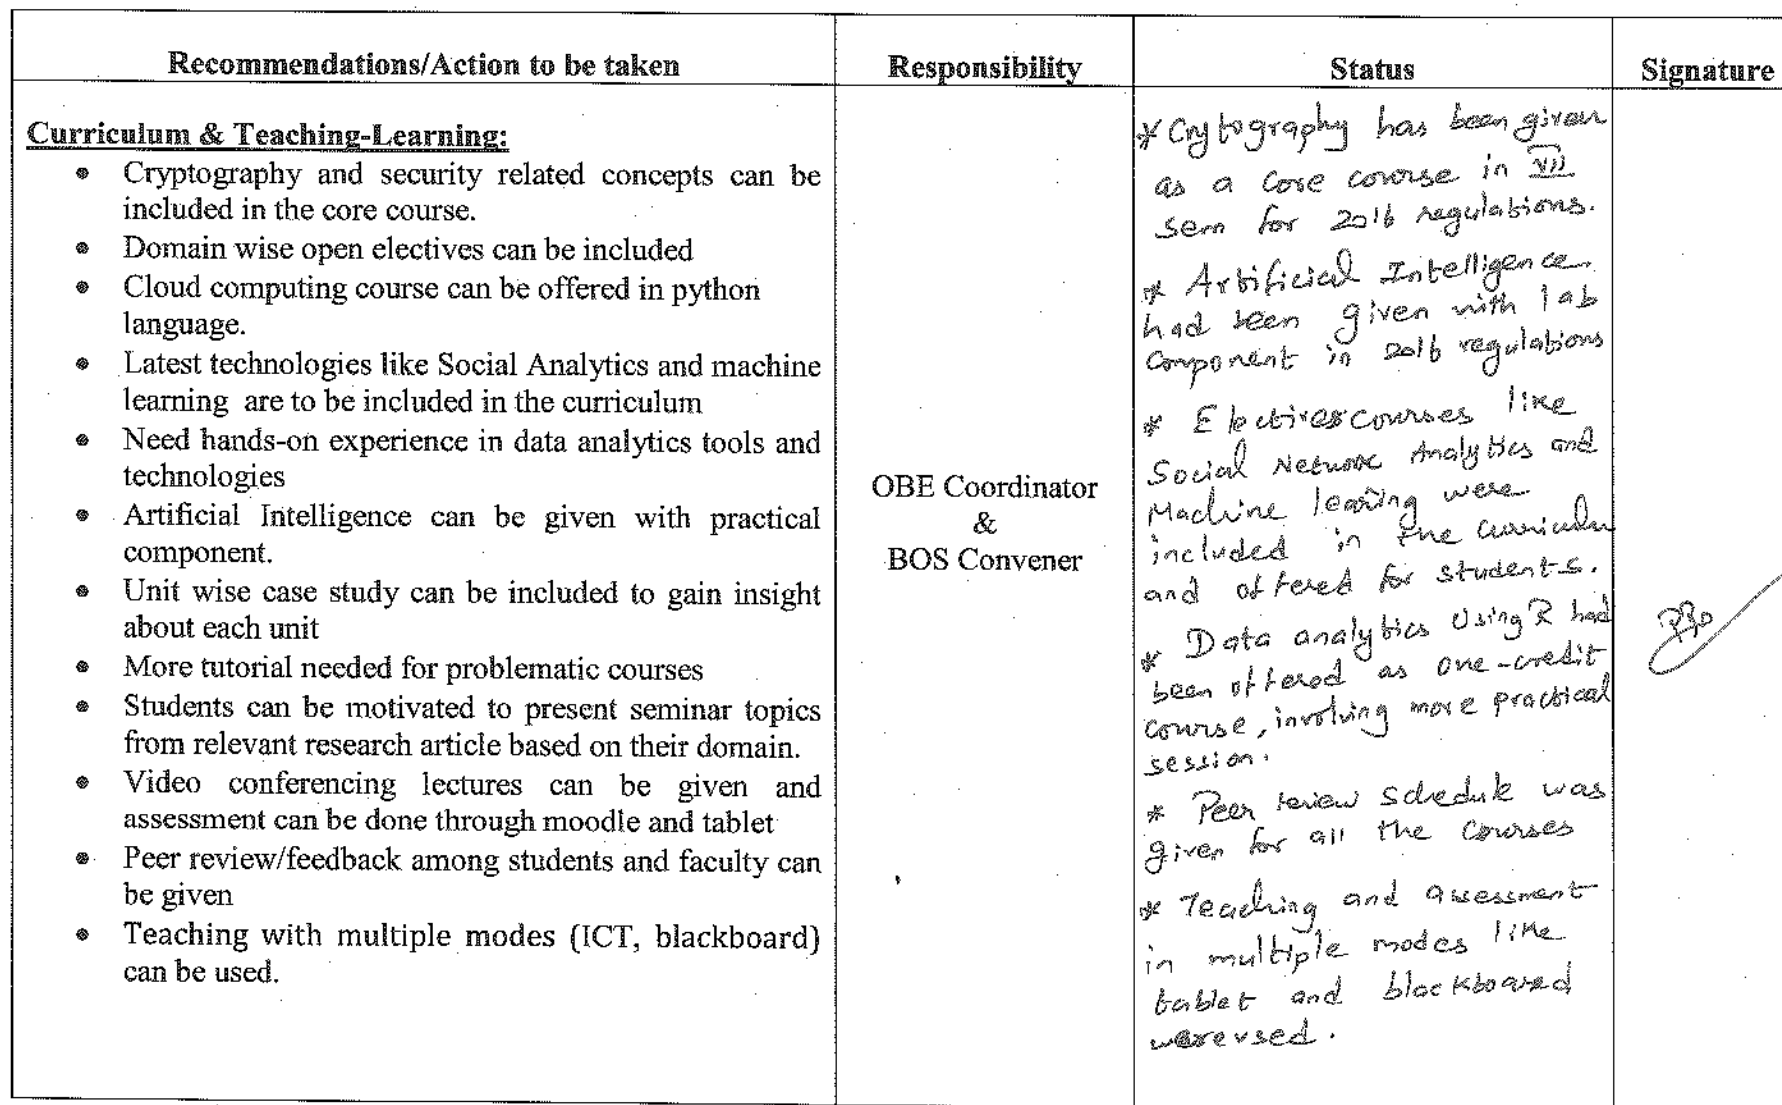 Recommendations/Action to be taken
Responsibility
Status
Signature
Curriculum & Teaching-Learning:
• Cryptography and security related concepts can be
included in the core course.
• Domain wise open electives can be included
• Cloud computing course can be offered in python
language.
• Latest technologies like Social Analytics and machine
learning are to be included in the curriculum
• Need hands-on experience in data analytics tools and
technologies
• Artificial Intelligence can be given with practical
component.
• Unit wise case study can be included to gain insight
about each unit
• More tutorial needed for problematic courses
• Students can be motivated to present seminar topics
from relevant research article based on their domain.
• Video conferencing lectures can be given and
assessment can be done through moodle and tablet
• Peer review/feedback among students and faculty can
be given
• Teaching with multiple modes (ICT, blackboard)
can be used.
OBE Coordinator
&
BOS Convener
* Crytography has been given
as a core course in VII
sem for 2016 regulations.
* Artificial Intelligence
had been given with lab
component in 2016 regulations
* Elective courses like
Social Network Analytics and
Machine learing were
included in the curriculum
and offered for students.
* Data analytics Using R had
been offered as one-credit
course, involving more practical
session.
* Peer review schedule was
given for all the courses
* Teaching and assessment
in multiple modes like
tablet and blackboared
were used.